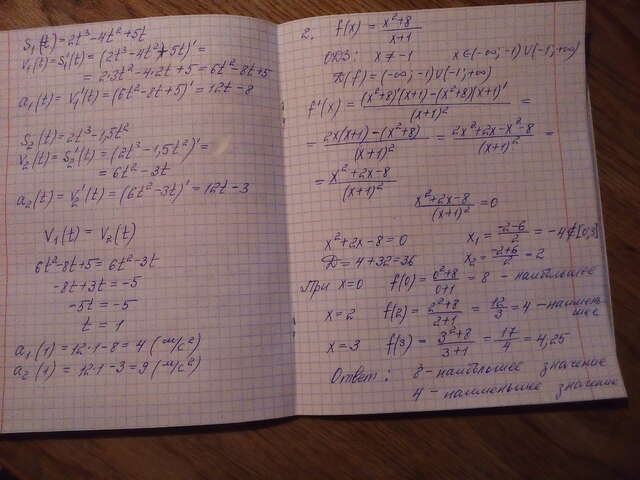 S₁(t) = 2t³ - 4t² + 5t
V₁(t) = S₁'(t) = (2t³ - 4t² + 5t)' =
= 2·3t² - 4·2t + 5 = 6t² - 8t + 5
a₁(t) = V₁'(t) = (6t² - 8t + 5)' = 12t - 8
S₂(t) = 2t³ - 1,5t²
V₂(t) = S₂'(t) = (2t³ - 1,5t²)' =
= 6t² - 3t
a₂(t) = V₂'(t) = (6t² - 3t)' = 12t - 3
V₁(t) = V₂(t)
6t² - 8t + 5 = 6t² - 3t
-8t + 3t = -5
-5t = -5
t = 1
a₁(1) = 12·1 - 8 = 4 (м/с²)
a₂(1) = 12·1 - 3 = 9 (м/с²)
2. f(x) = (x² + 8)/(x + 1)
ОДЗ: x ≠ -1 x ∈ (-∞; -1) ∪ (-1; +∞)
D(f) = (-∞; -1) ∪ (-1; +∞)
f'(x) = ((x² + 8)'(x + 1) - (x² + 8)(x + 1)')/(x + 1)² =
= (2x(x + 1) - (x² + 8))/(x + 1)² = (2x² + 2x - x² - 8)/(x + 1)² =
= (x² + 2x - 8)/(x + 1)²
(x² + 2x - 8)/(x + 1)² = 0
x² + 2x - 8 = 0 x₁ = (-2 - 6)/2 = -4 ∉ [0; 3]
D = 4 + 32 = 36 x₂ = (-2 + 6)/2 = 2
При x = 0 f(0) = (0² + 8)/(0 + 1) = 8 - наибольшее
x = 2 f(2) = (2² + 8)/(2 + 1) = 12/3 = 4 - наимень-
шее
x = 3 f(3) = (3² + 8)/(3 + 1) = 17/4 = 4,25
Ответ: 8 - наибольшее значение
4 - наименьшее значение